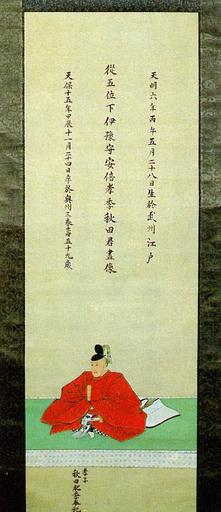 天明六年丙午五月二十八日生於武州江戸
從五位下伊豫守安倍孝季秋田君畫像
天保十五年甲辰十一月二十四日卒於奥州三春壽五十九歳
孝子
秋田肥季奉祀